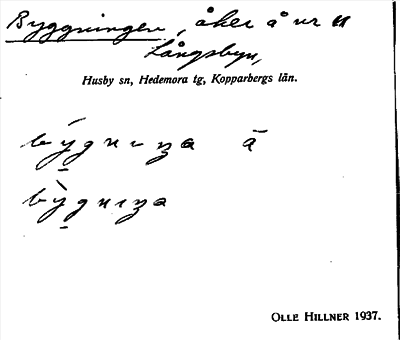 Byggningen, åker å nr 11
Långsbyn,
Husby sn, Hedemora tg, Kopparbergs län.
býgnıŋa ā
bỳgnıŋa
OLLE HILLNER 1937.